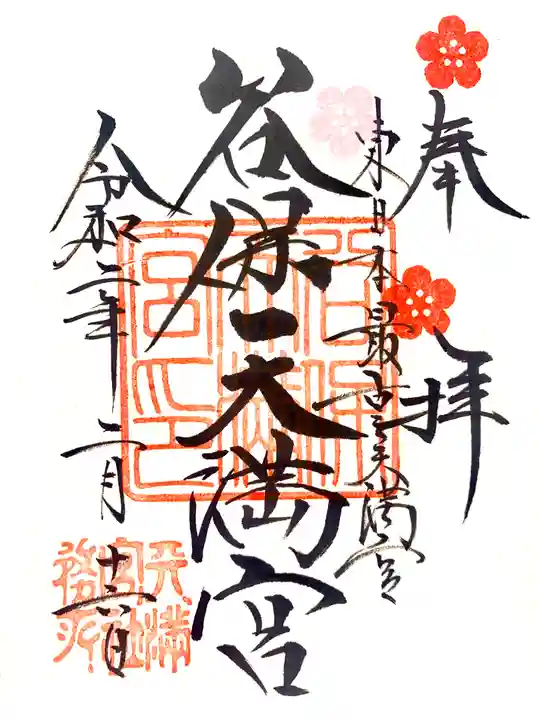 奉拝
東日本最古天満宮
谷保天満宮
令和二年二月
谷保天満宮印
天満宮社務所